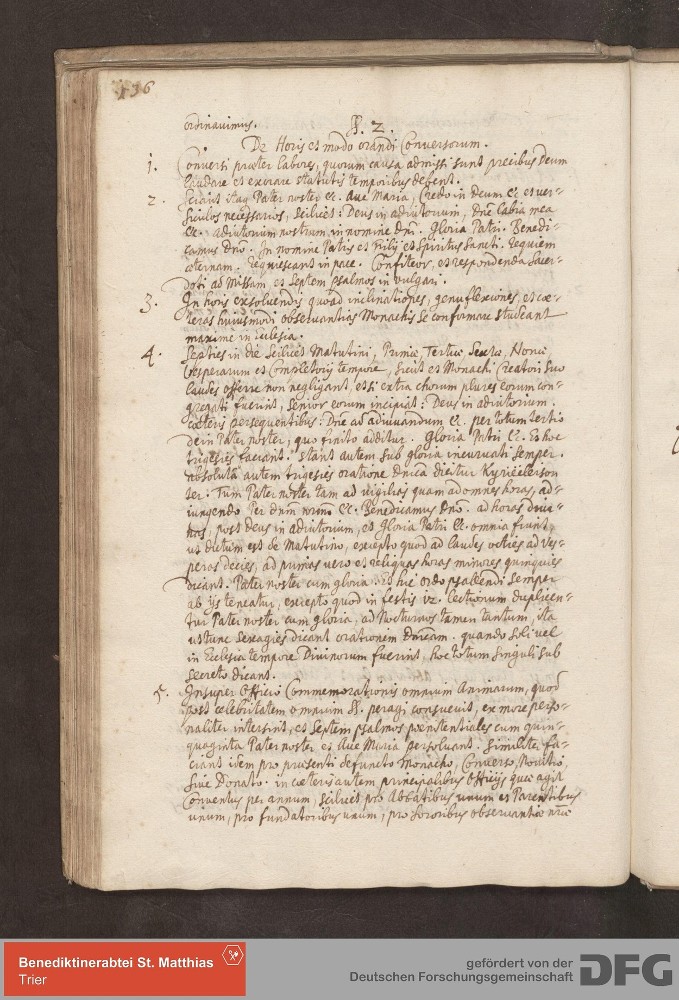 136
ordinavimus.
§. 2.
De Horis et modo orandi Conversorum.
1. Conversi præter labores, quorum causa admissi sunt precibus Deum
laudare et exorare statutis temporibus debent.
2. Sciant itaq Pater noster &c. Ave Maria, Credo in Deum &c. et ver-
siculos necessarios, scilicet: Deus in adiutorium, Dne labia mea
&c. adiutorium nostrum in nomine Dni. Gloria Patri. Benedi-
camus Dno. In nomine Patris et Filij et Spiritus Sancti. Requiem
æternam. Requiescant in pace. Confiteor, et respondenda Sacer-
doti ad Missam, et septem psalmos in vulgari.
3. In horis exsolvendis quoad inclinationes, genuflexiones, et cæ-
teras huiusmodi observantias Monachis se conformare studeant
maxime in ecclesia.
4. Septies in die scilicet Matutini, Primæ, Tertiæ, Sextæ, Nonæ
Vesperarum et Completorij tempore, sicut et Monachi Creatori suo
laudes offerre non negligant, et si extra chorum plures eorum con-
gregati fuerint, senior eorum incipiat: Deus in adiutorium.
cæteris persequentibus: Dne ad adiuvandum &c. per totum tertio
dein Pater noster, quo finito additur. Gloria Patri &c. Et hoc
trigesies faciant. stant autem sub gloria incurvati semper.
absoluta autem trigesies oratione dnica dicitur Kyrieeleison
ter. Tum Pater noster tam ad vigilias quam ad omnes horas, ad-
iungendo Per dnm nrm &c. Benedicamus Dno. ad horas diur-
nas, post Deus in adiutorium, et Gloria Patri &c. omnia fiunt,
ut dictum est de Matutino, excepto quod ad Laudes octies ad ves-
peras decies, ad primas vero et reliquas horas minores quinquies
dicant. Pater noster cum gloria. Et hic ordo psallendi semper
ab ijs teneatur, excepto quod in festis 12. Lectionum duplicen-
tur Pater noster cum gloria, ad Nocturnos tamen tantum, ita
ut tunc sexagies dicant orationem Dnicam. quando soli vel
in Ecclesia tempore Divinorum fuerint, hoc totum singuli sub
secreto dicant.
5. Insuper Officio Commemorationis omnium Animarum, quod
post celebritatem omnium SS. peragi consuevit, ex more perso-
naliter intersint, et septem psalmos pœnitentiales cum quin-
quaginta Pater noster et Ave Maria persolvant. similiter fa-
ciant idem pro præsenti defuncto Monacho, Converso, Novitio,
sive Donato. in cæteris autem principalibus Officijs quæ agit
Conventus per annum, scilicet pro Abbatibus unum et Parentibus
unum, pro fundatoribus unum, pro sororibus observantiæ nræ
Benediktinerabtei St. Matthias
Trier
gefördert von der
Deutschen Forschungsgemeinschaft
DFG